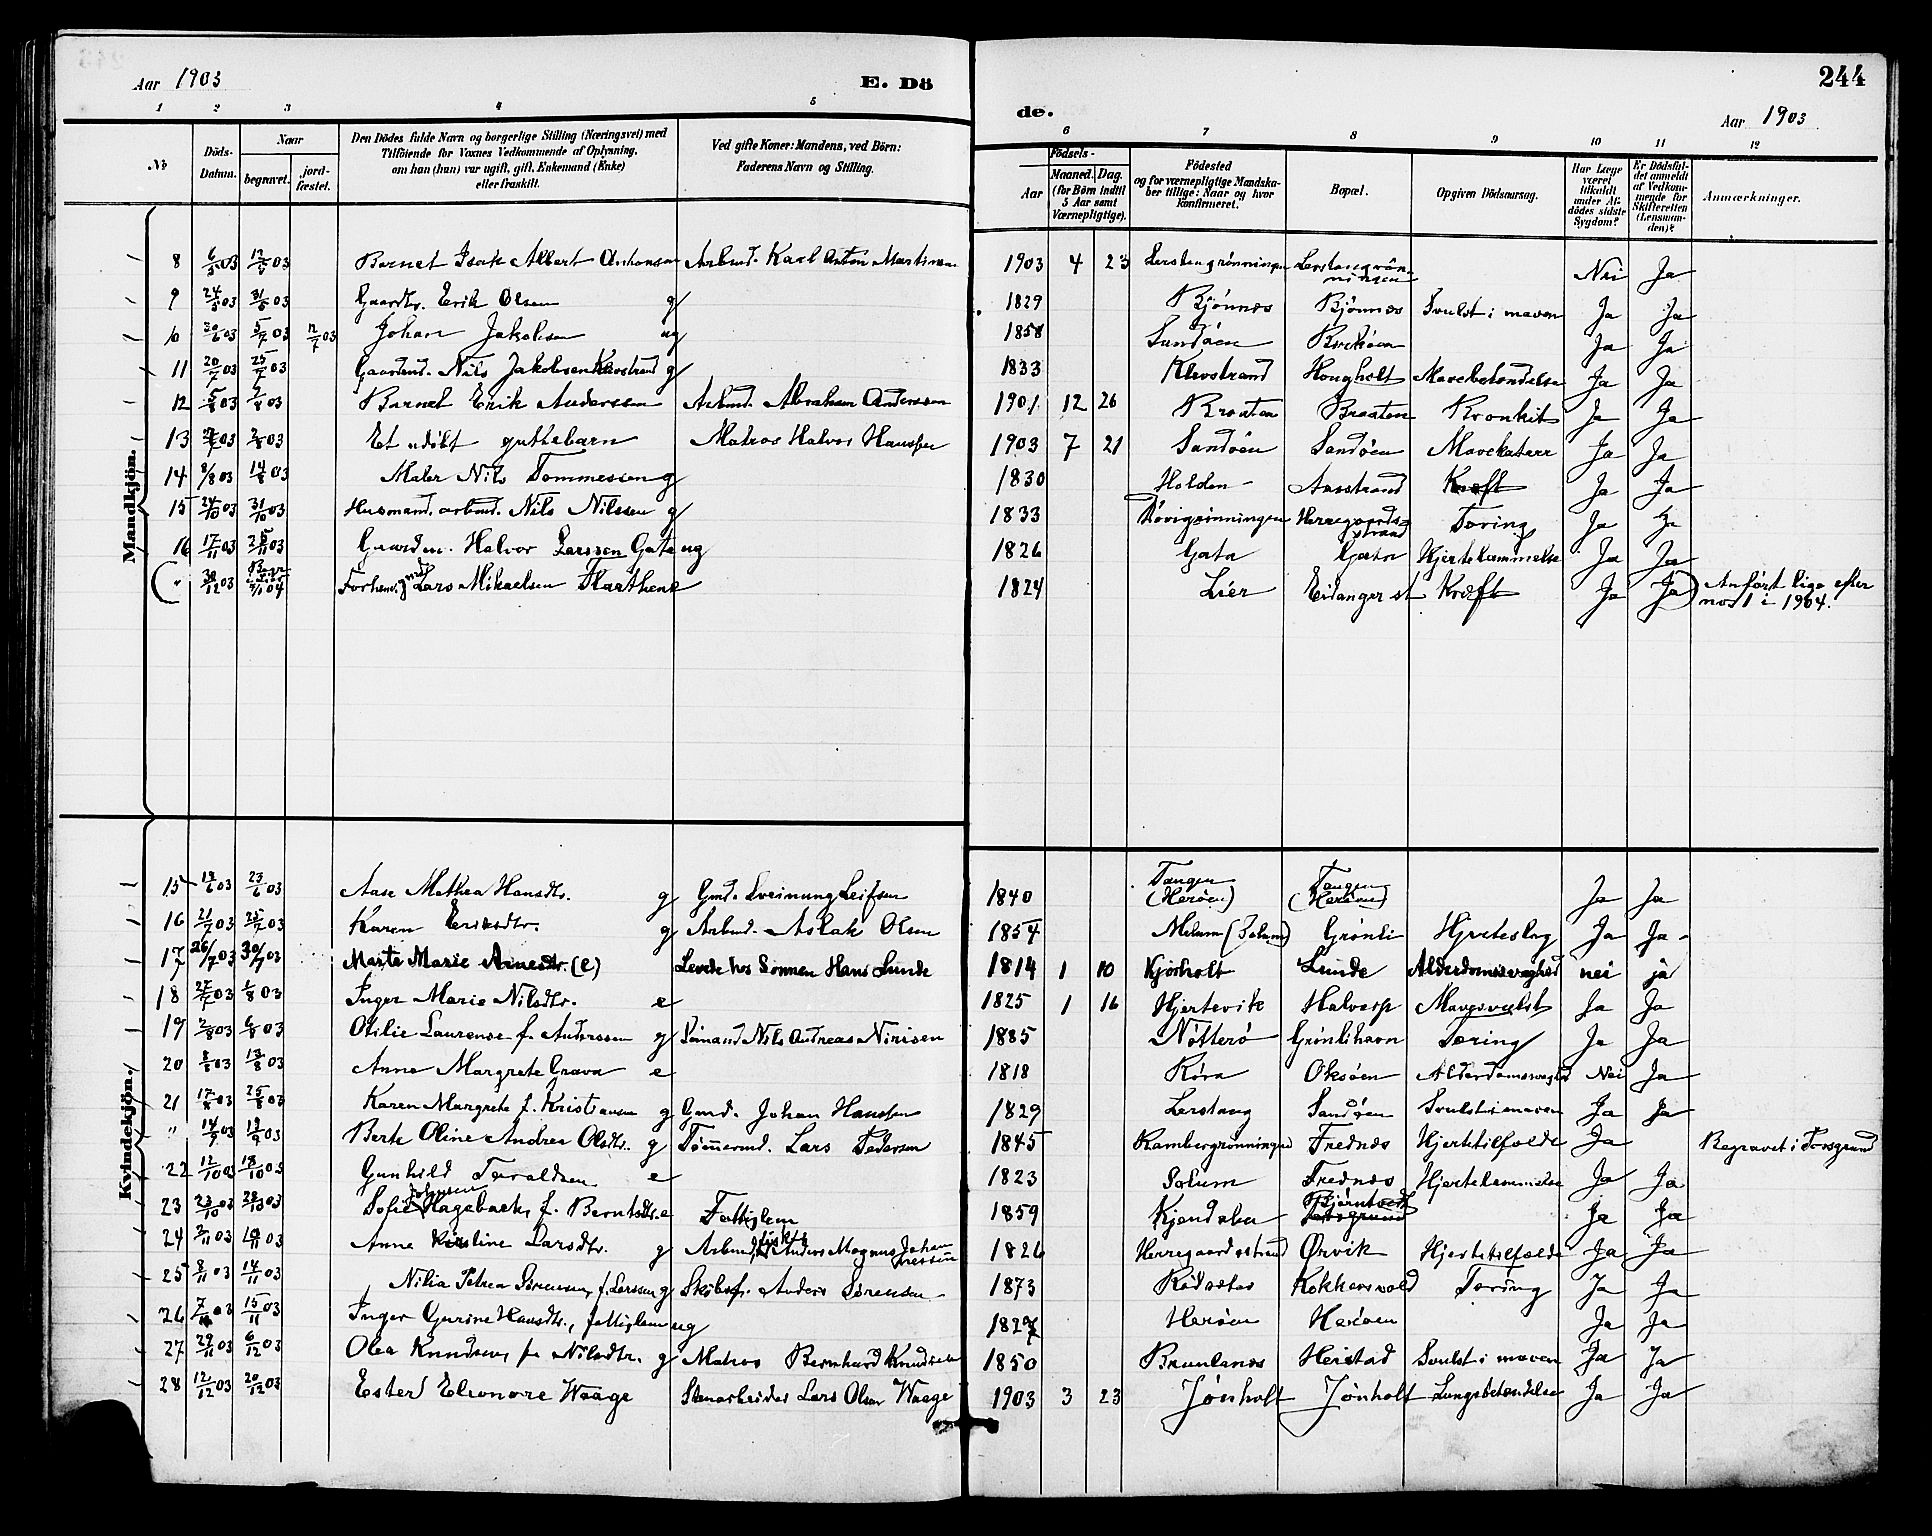 Aar 1903
E. Dö
de.
244
Aar 1903
1 2 3 4 5 6 7 8 9 10 11 12
No
Döds-Datum.
Naar
begravet.
jord-fæstet.
Den Dödes fulde Navn og borgerlige Stilling (Næringsvei) med
Tilföiende for Voxnes Vedkommende af Oplysning,
om han (hun) var ugift, gift, Enkemand (Enke)
eller fraskilt.
Ved gifte Koner: Mandens, ved Börn:
Faderens Navn og Stilling.
Födsels-
Aar
Maaned. Dag.
(for Börn indtil
5 Aar samt
Værnepligtige).
Födested
og for værnepligtige Mandska-
ber tillige: Naar og hvor
konfirmeret.
Bopæl.
Opgiven Dödsaarsag.
Har Læge
været
tilkaldt
under Af-
dödes sidste
Sygdom?
Er Dödsfal-
det anmeldt
af Vedkom-
mende for
Skifteretten
(Lensman-
den)?
Anmærkninger.
Mandkjön.
8 03 03 Barnet Isak Albert Antonsen Arbmd. Karl Anton Martinsen 1903 4 23 Nei Ja
9 24/5 03 31/5 03 Gaardbr. Erik Olsen g 1829 Bjönnes Bjönnes Svulst i maven Ja Ja
10 30/6 03 5/7 03 03 Johan Jakobsen ug 1858 Sandöen Ja Ja
11 20/7 03 25/7 03 Gaardmd. Nils Jakobsen Klevstrand g 1833 Klevstrand Hougholt Mavebetændelse Ja Ja
12 5/8 03 03 Barnet Erik Anderssen Arbmd. Abraham Anderssen 1901 12 26 Braaten Braaten Bronkit Ja Ja
13 03 03 Et udöbt guttebarn Matros Halvor Hanssen 1903 7 21 Sandöen Sandöen Mavekatarr Ja Ja
14 8/8 03 14/8 03 Maler Nils Tommessen g 1830 Holden Aasstrand Kræft Ja Ja
15 24/10 03 31/10 03 Husmand. arbmd. Nils Nilssen g 1833 Herregaards-strand Tæring Ja Ja
16 17/11 03 25/11 03 Gaardm. Halvor Larssen Gata ug 1826 Gata Gata Hjertelammelse Ja Ja
( " 30/12 03 04 Forhenv. gmd. Lars Mikaelsen Flaathene 1824 Lier Eidanger st Kræft Ja Ja) Anfört lige efter
no 1 i 1904.
Kvindekjön.
15 19/6 03 23/6 03 Aase Mathea Hansdtr. g Gmd. Sveinung Leifsen 1840 Tangen (Heröen) Tangen (Heröen) Ja Ja
16 21/7 03 25/7 03 Karen Eriksdtr. g Arbmd. Aslak Olsen 1854 Melum (Solum) Grönli Hjerteslag Ja Ja
17 26/7 03 30/7 03 Marte Marie Arnesdtr. (e) Levede hos Sönnen Hans Lunde 1814 1 10 Kjörholt Lunde Alderdomssvaghed nei ja
18 03 03 Inger Marie Nilsdtr. e 1825 1 16 Hjertevik Halvarp Mavesvulst Ja Ja
19 2/8 03 6/8 03 Otilie Laurense f. Anderssen g Sömand Nils Andreas Nirisen 1885 Nötterö Grönlihavn Tæring Ja Ja
20 8/8 03 13/8 03 Anne Margrete Grava e 1818 Röra Oksöen Alderdomssvaghd Nei Ja
21 17/8 03 25/8 03 Karen Margrete f. Kristiansen g Gmd. Johan Hanssen 1829 Lerstang Sandöen Svulst i maven Ja Ja
" 14/9 03 19/9 03 Berte Oline Andrea Olsdtr. g Tömmermd. Lars Pedersen 1845 Rambergrønningen Frednes Hjertetilfælde Ja Begravet i Porsgrund
22 12/10 03 18/10 03 Gunhild Taraldsen e 1823 Solum Frednes Hjertelammelse Ja Ja
23 23/10 03 28/10 03 Sofie Johnsen Hagebaek, f. Berntsdtr. e Fattiglem 1859 Kjendalen Björntvedt Porsgrund Ja Ja
24 2/11 03 10/11 03 Anne Kirstine Larsdtr. g Arbmd. Anders Magnus Johannessen 1826 Herregaardsstrand Ørvik Hjertetilfælde Ja Ja
25 8/11 03 14/11 03 Nilia Petrea Sörensen, f. Larssen g Skibsf. Anders Sörensen 1873 Kokkersvold Tæring Ja Ja
26 7/11 03 15/11 03 Inger Gurine Hansdtr., fattiglem ug 1827 Heröen Heröen Ja Ja
27 29/11 03 6/12 03 Olea Knudsen, f. Nilsdtr. g Matros Bernhard Knudsen 1850 Brunlanes Heistad Svulst i maven Ja Ja
28 12/12 03 20/12 03 Ester Eleonore Waage Stenarbeider Lars Olsen Waage 1903 3 23 Jönholt Jönholt Lungebetændelse Ja Ja